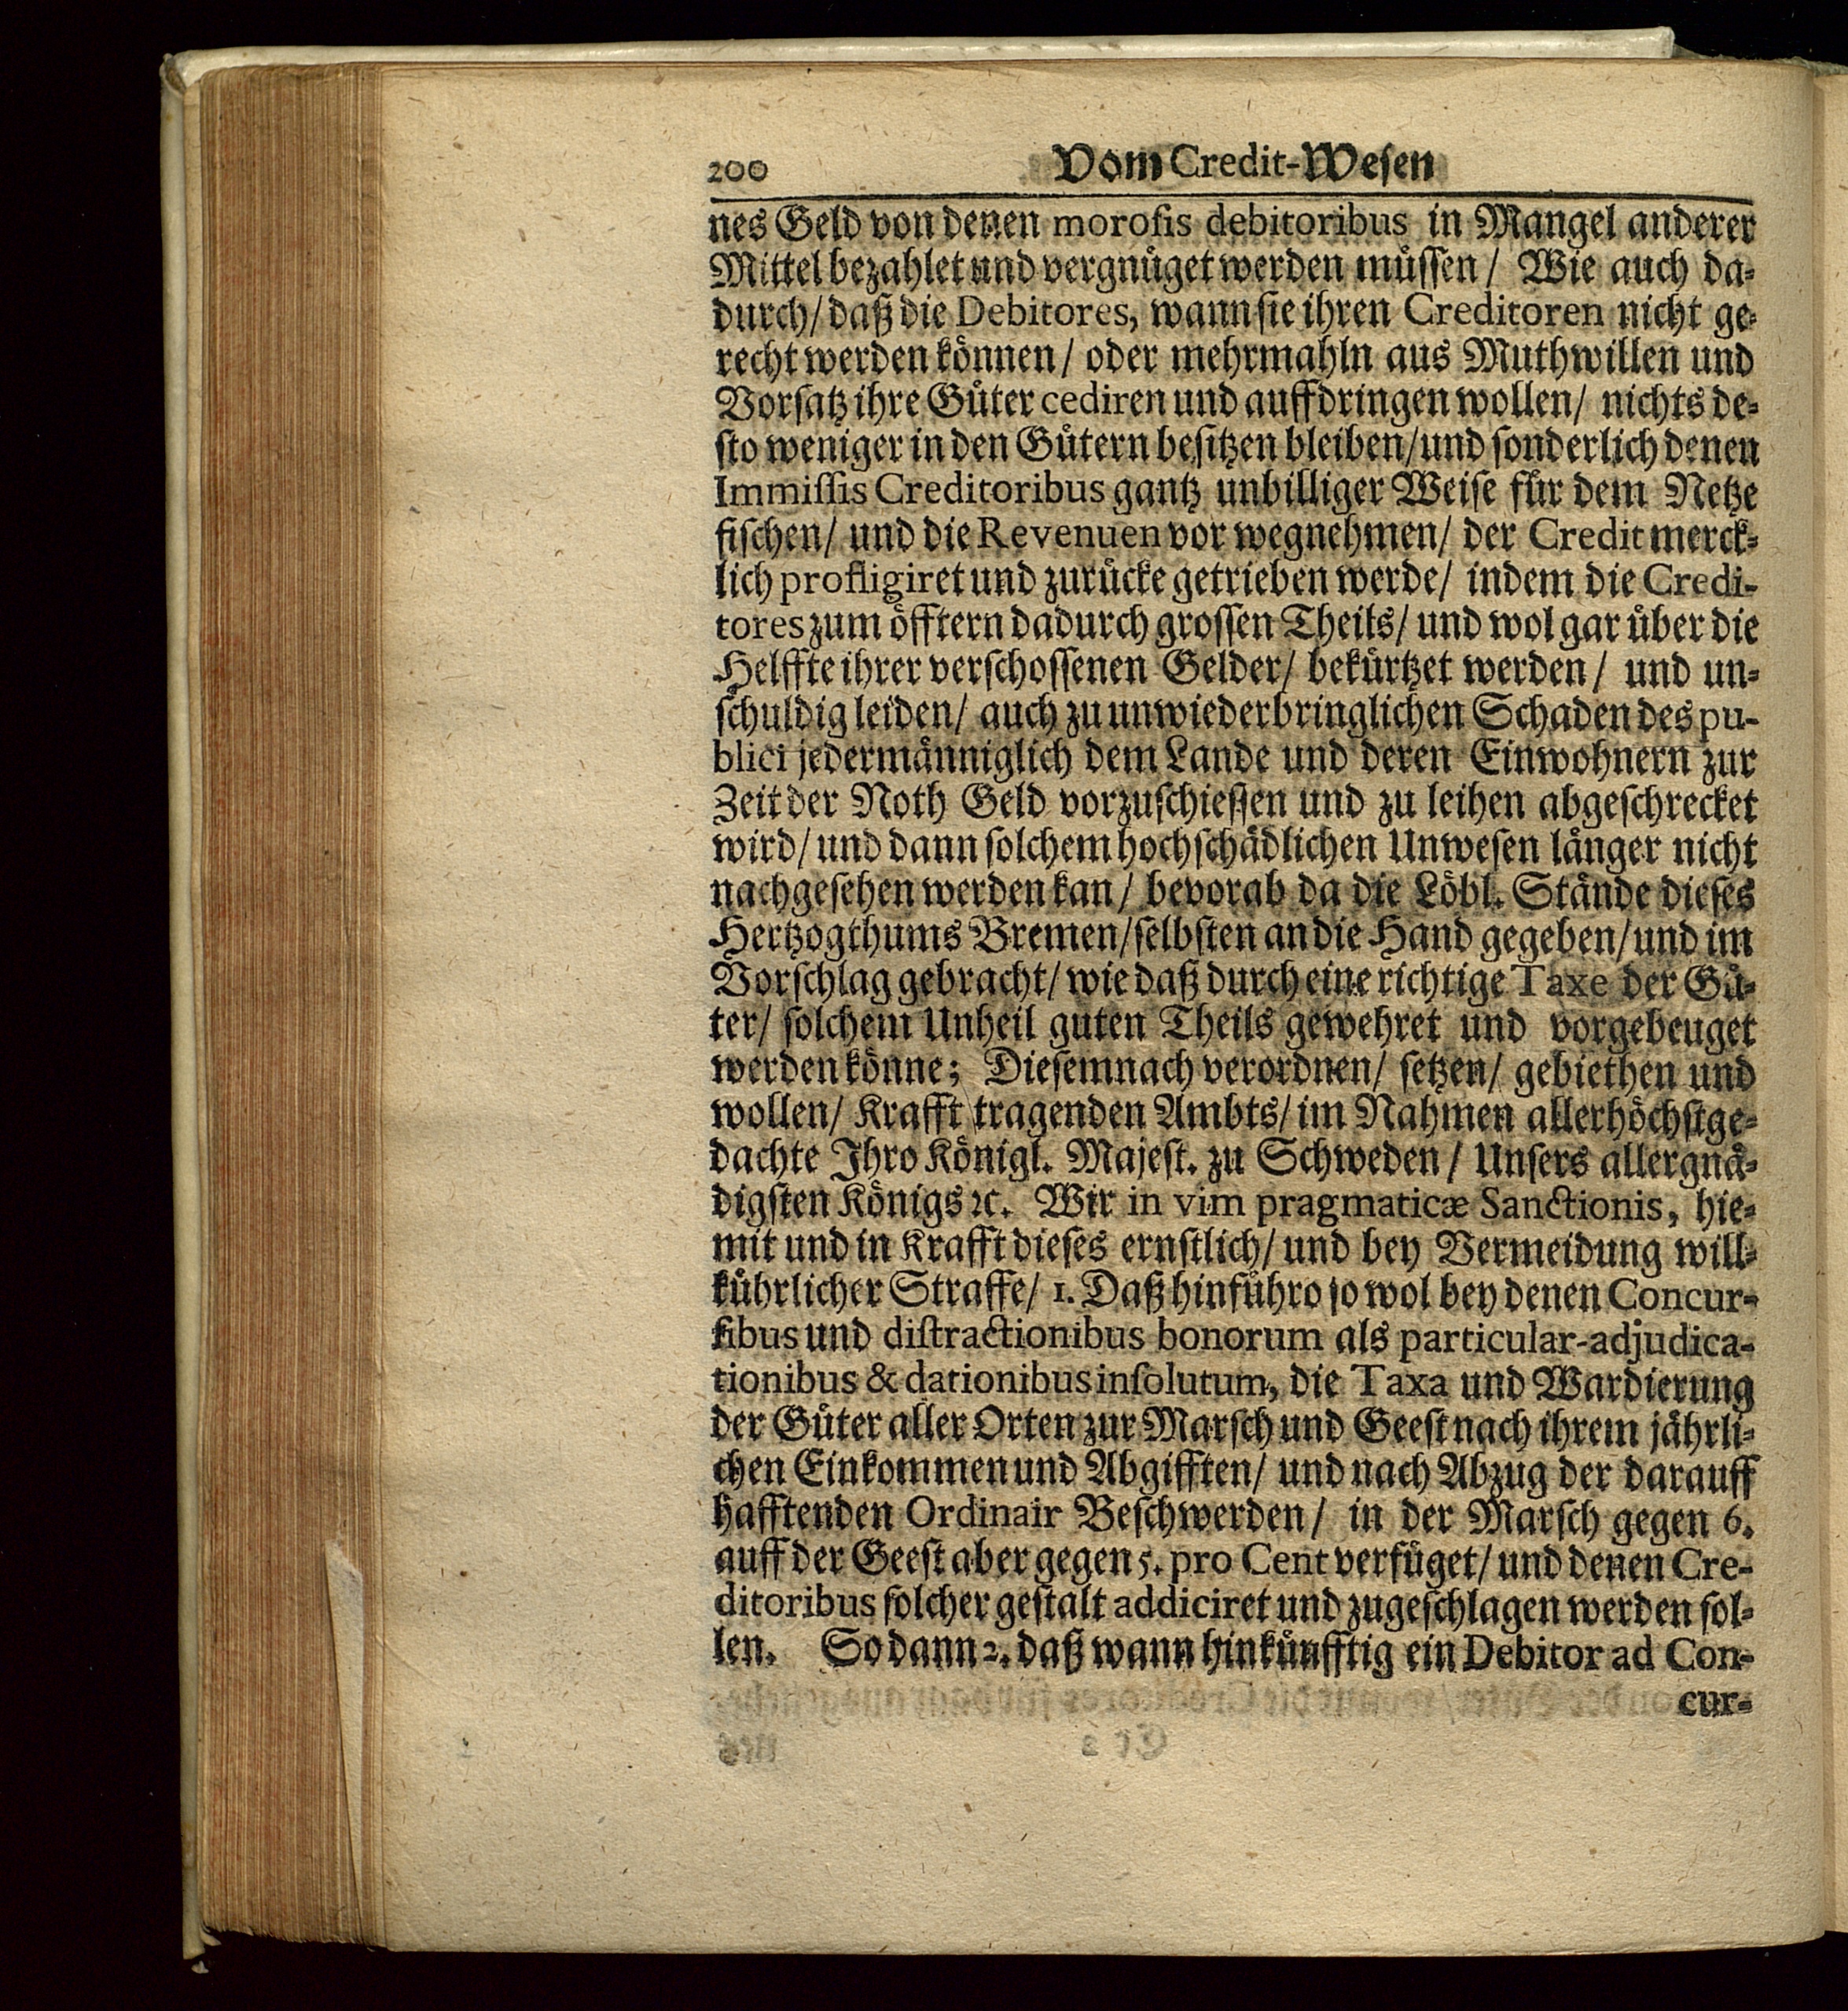 200 Vom Credit-Wesen
nes Geld von denen morosis debitoribus in Mangel anderer
Mittel bezahlet und vergnüget werden müssen / Wie auch da-
durch / daß die Debitores, wann sie ihren Creditoren nicht ge-
recht werden können / oder mehrmahln aus Muthwillen und
Vorsatz ihre Güter cediren und auffdringen wollen / nichts de-
sto weniger in den Gütern besitzen bleiben / und sonderlich denen
Immissis Creditoribus gantz unbilliger Weise für dem Netze
fischen / und die Revenuen vor wegnehmen / der Credit merck-
lich profligiret und zurücke getrieben werde / indem die Credi-
tores zum öfftern dadurch grossen Theils / und wol gar über die
Helffte ihrer verschossenen Gelder / bekürtzet werden / und un-
schuldig leiden / auch zu unwiederbringlichen Schaden des pu-
blici jedermänniglich dem Lande und deren Einwohnern zur
Zeit der Noth Geld vorzuschiessen und zu leihen abgeschrecket
wird / und dann solchem hochschädlichen Unwesen länger nicht
nachgesehen werden kan / bevorab da die Löbl. Stände dieses
Hertzogthums Bremen / selbsten an die Hand gegeben / und im
Vorschlag gebracht / wie daß durch eine richtige Taxe der Gü-
ter / solchem Unheil guten Theils gewehret und vorgebeuget
werden könne; Diesemnach verordnen / setzen / gebiethen und
wollen / Krafft tragenden Ambts / im Nahmen allerhöchstge-
dachte Ihro Königl. Majest. zu Schweden / Unsers allergnä-
digsten Königs ꝛc. Wir in vim pragmaticæ Sanctionis, hie-
mit und in Krafft dieses ernstlich / und bey Vermeidung will-
kührlicher Straffe / 1. Daß hinführo so wol bey denen Concur-
sibus und distractionibus bonorum als particular-adjudica-
tionibus & dationibus insolutum, die Taxa und Wardierung
der Güter aller Orten zur Marsch und Geest nach ihrem jährli-
chen Einkommen und Abgifften / und nach Abzug der darauff
hafftenden Ordinair Beschwerden / in der Marsch gegen 6.
auff der Geest aber gegen 5. pro Cent verfüget / und denen Cre-
ditoribus solcher gestalt addiciret und zugeschlagen werden sol-
len. So dann 2. daß wann hinkünfftig ein Debitor ad Con-
cur-